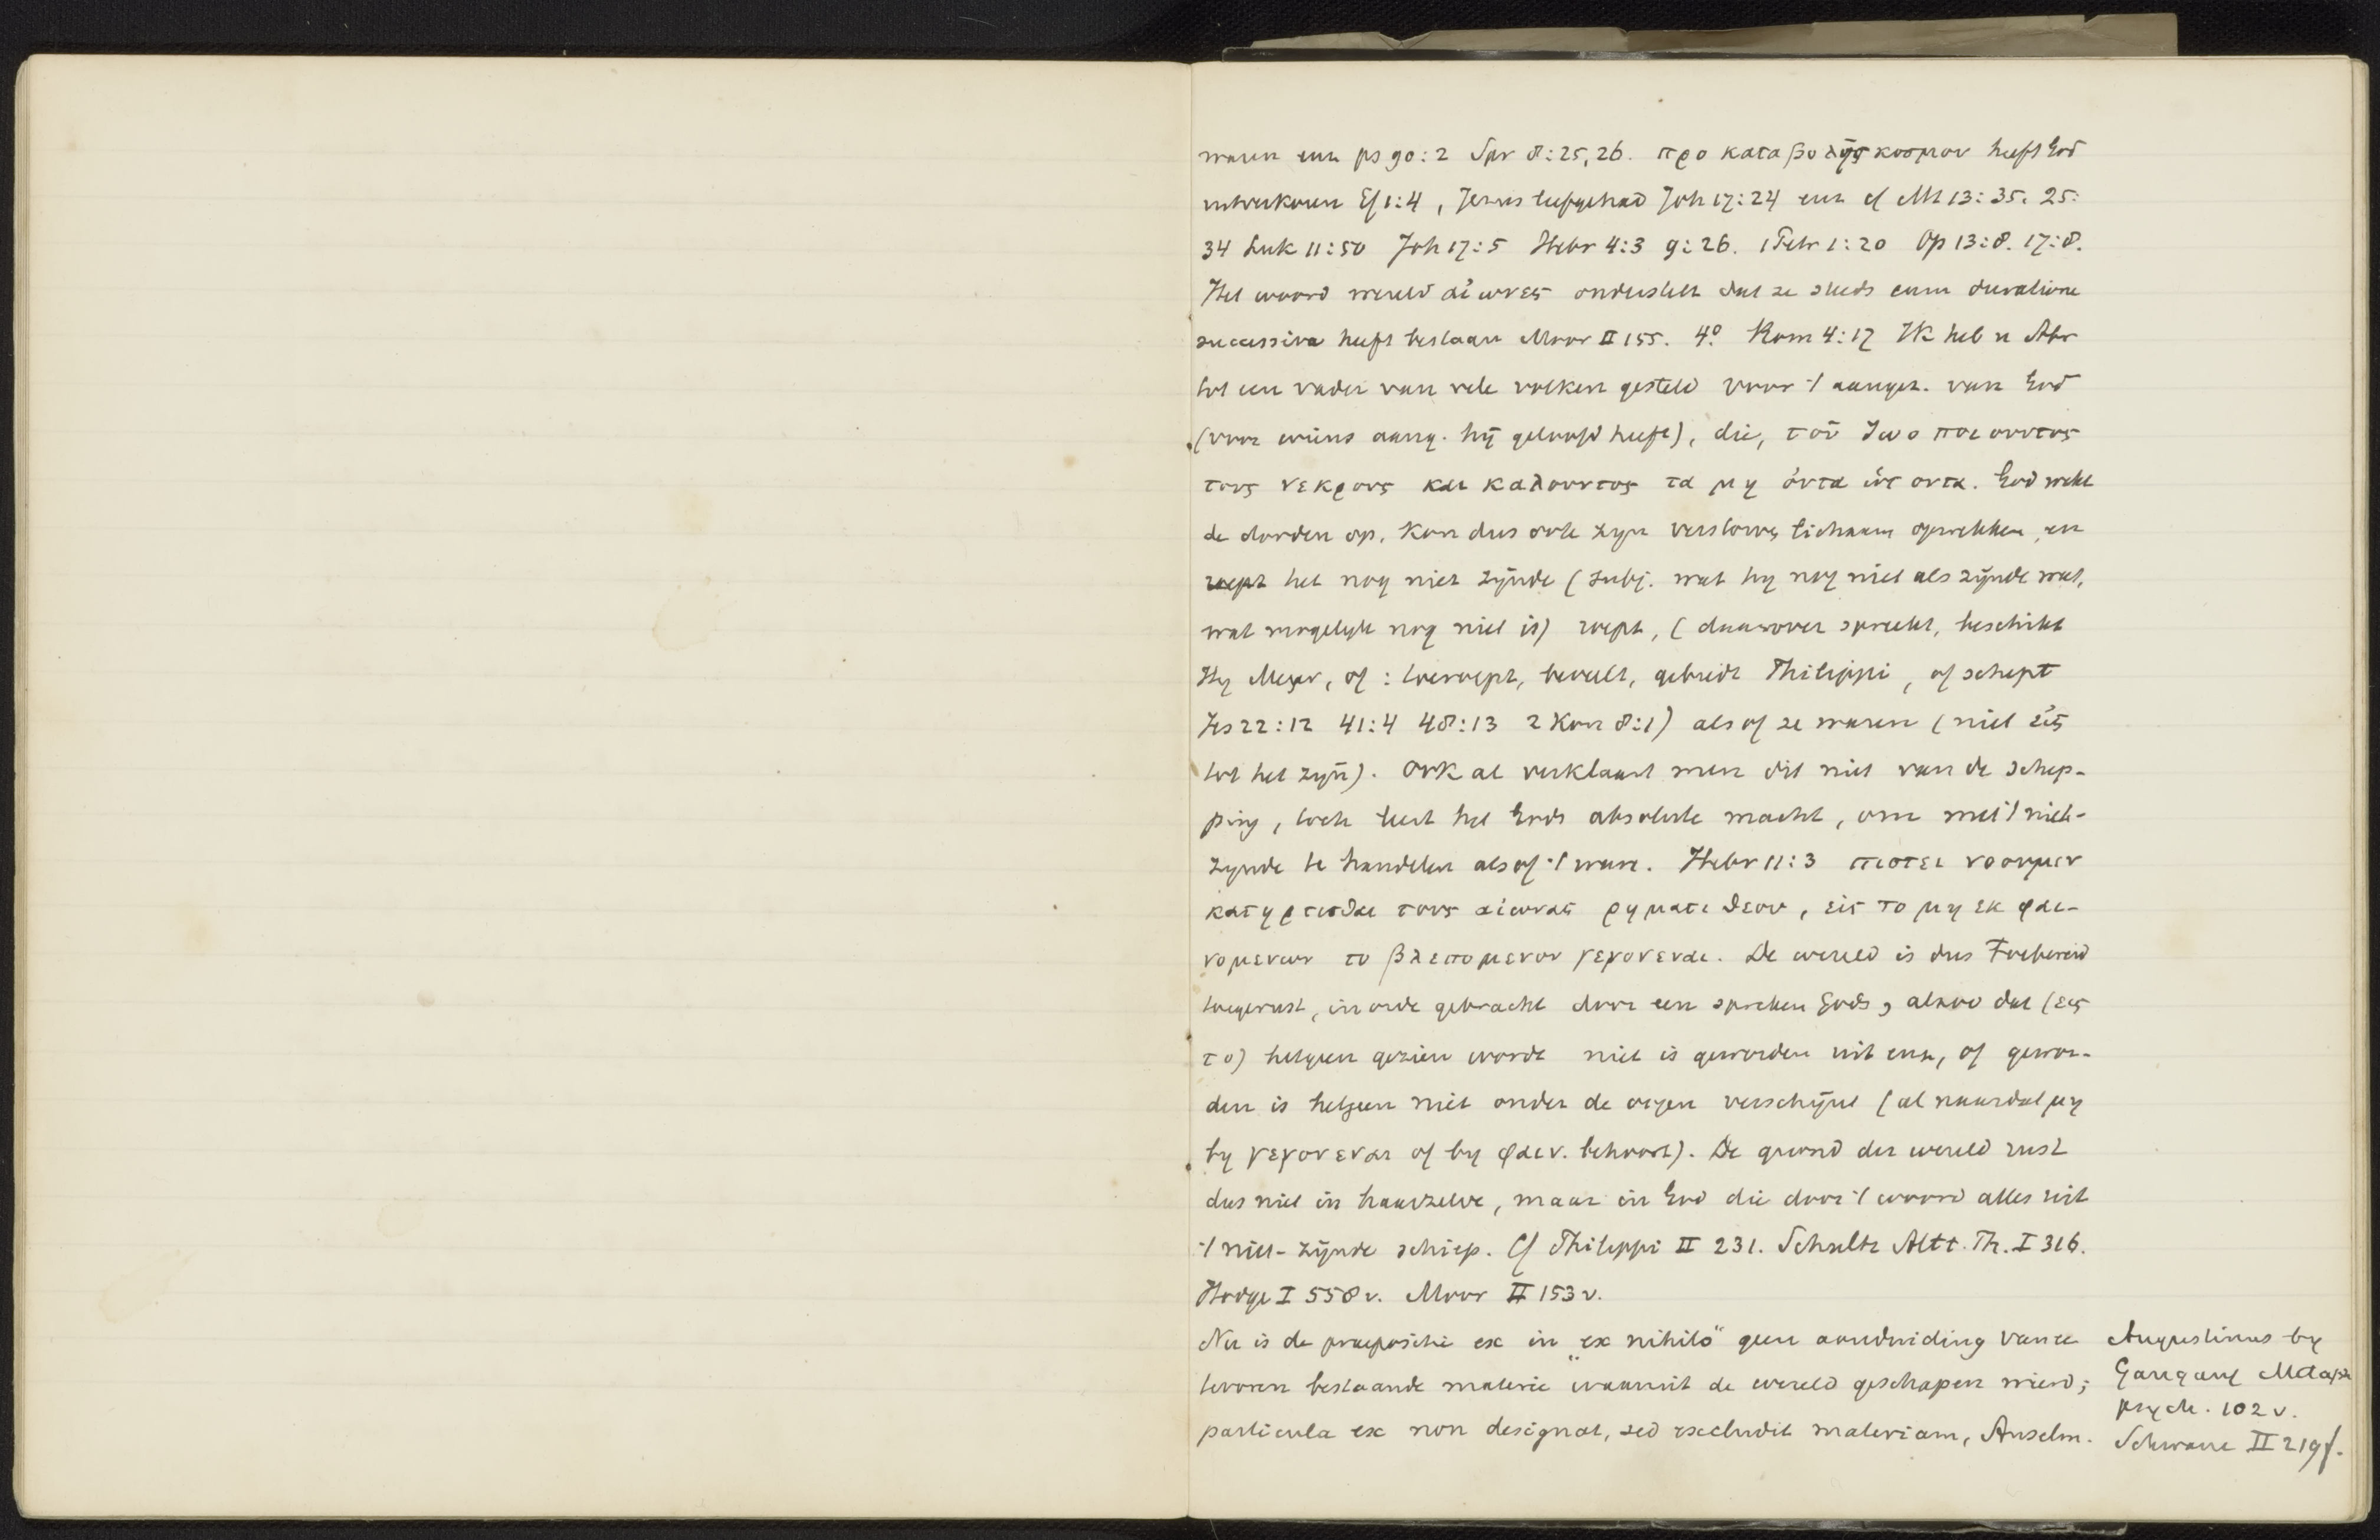 waren enz ps 90:2 Spr 8:25,26. προ καταβολης κοσμου heeft God
uitverkoren Ef 1:4, Jezus liefgehad Joh 17:24 enz cf Mt 13:35. 25:
34 Luk 11:50 Joh 17:5 Hebr 4:3 9:26. 1 Petr 1:20 Op 13:8. 17:8.
Het woord wereld αἰωνες onderstelt dat ze steeds cum duratione
successiva heeft bestaan Moor II 155. 4° Rom 4:17 Ik heb u Abr
tot een vader van vele volken gesteld voor 't aangez. van God
(voor wiens aang. hij geloofd heeft), die, του ζωοποιουντος
τους νεκρους και καλουντος τα μη ὀντα ὡς οντα. God wekt
de dooden op, kon dus ook zijn verstorven lichaam opwekken, en
roept het nog niet zijnde (subj. wat hij nog niet als zijnde wat,
wat mogelijk nog niet is) roept, (daarover spreekt, beschikt
Hij Meyer, of: toeroept, beveelt, gebiedt Philippi, of schept
Jes 22:12 41:4 48:13 2 Kon 8:1) alsof ze waren (niet εἰς
tot het zijn). Ook al verklaart men dit niet van de schep-
ping, toch leert het Gods absolute macht, om met 't niet-
zijnde te handelen alsof 't ware. Hebr 11:3 πιστει νοουμεν
κατηρτισθαι τους αἰωνας ρηματι θεου, εις το μη εκ φαι-
νομενων το βλεπομενον γεγονεναι. De wereld is dus toebereid
toegerust, in orde gebracht door een spreken Gods, alzoo dat (εις
το) hetgeen gezien wordt niet is geworden uit enz, of gewor-
den is hetgeen niet onder de oogen verschijnt (al naardat μη
by γεγονεναι of by φαιν. behoort). De grond der wereld rust
dus niet in haarzelve, maar in God die door 't woord alles uit
't niet-zijnde schiep. Cf Philippi II 231. Schultz Altt. Th. I 316.
Hodge I 558 v. Moor II 153 v.
Nu is de praepositie ex in „ex nihilo" geen aanduiding van te
tevoren bestaande materie waaruit de wereld geschapen wierd;
particula ex non designat, sed excludit materiam, Anselm.
Augustinus by
Gangauf Metaph
psych. 102 v.
Schwane II 219 f.